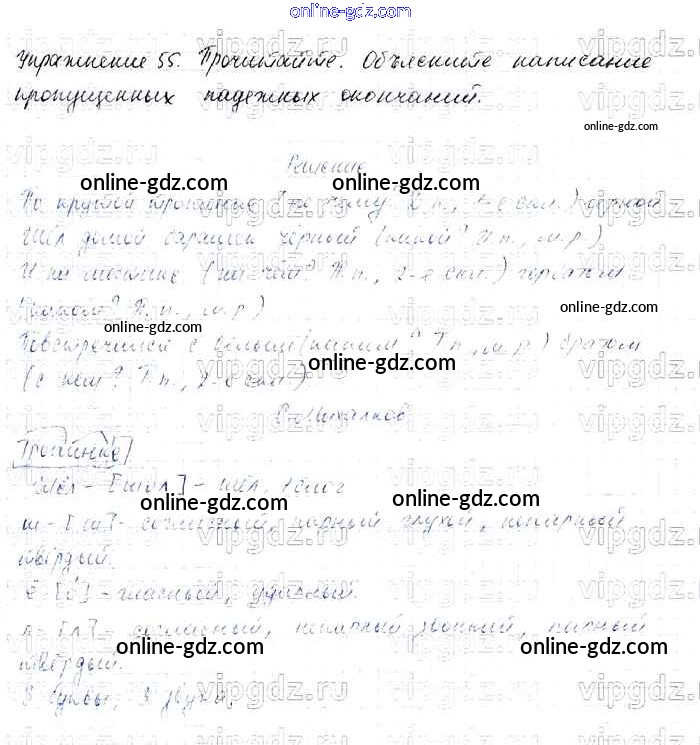 online-gdz.com
Упражнение 55. Прочитайте. Объясните написание
пропущенных падежных окончаний.
online-gdz.com
Решение
online-gdz.com online-gdz.com
По крутой тропинке
Шёл домой барашек чёрный (какой? И.п., м.р.)
И на мостике (на чём? П.п., 2-е скл.) горбатом
online-gdz.com
(каком? П.п., м.р.)
online-gdz.com
Повстречался с белым (каким? Т.п., м.р.) братом
online-gdz.com
(с кем? Т.п., 2-е скл.)
С. Михалков
Тропинке
Шёл - [шол] - шёл, 1 слог
online-gdz.com online-gdz.com
ш - [ш] - согласный, парный глухой, непарный
твёрдый.
ё [о́] - гласный, ударный
л - [л] - согласный, непарный звонкий, парный
online-gdz.com online-gdz.com
твёрдый.
3 буквы, 3 звука.
vipgdz.ru